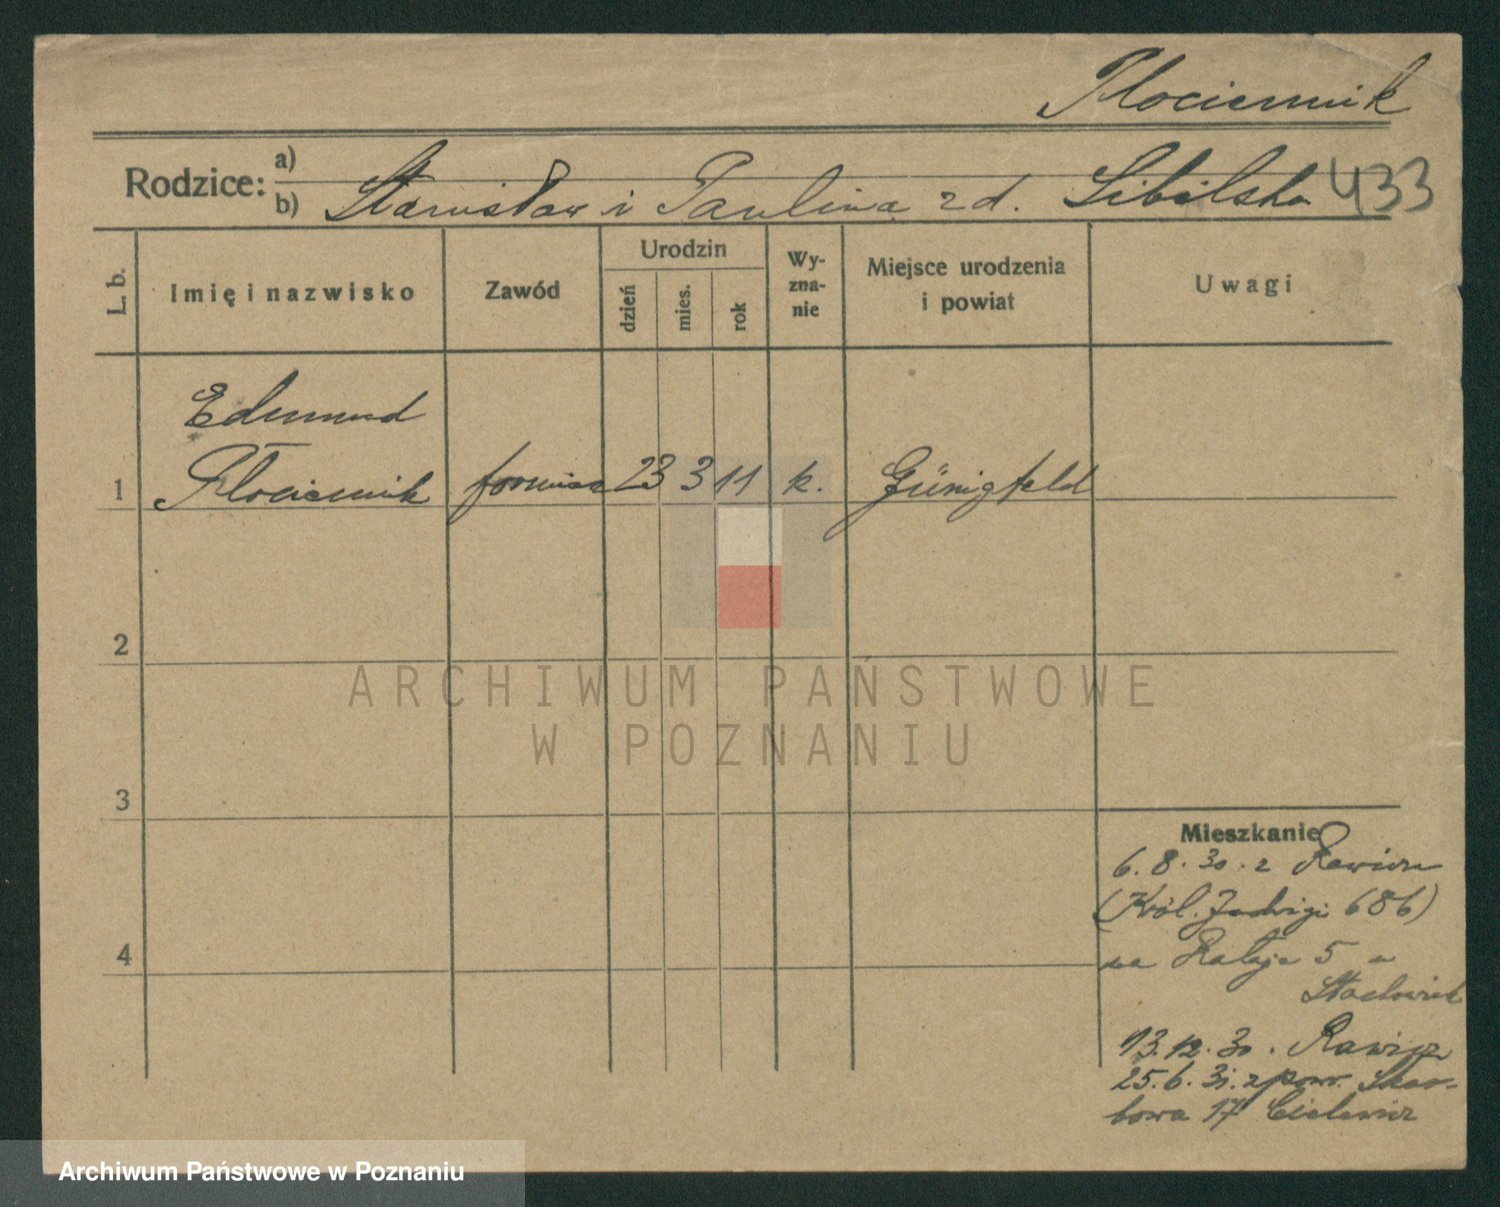 Płociennik
Rodzice: a)
b) Stanisław i Paulina z d. Sibilska 433
L. b.
Imię i nazwisko
Zawód
Urodzin
dzień
mies.
rok
Wy-
zna-
nie
Miejsce urodzenia
i powiat
Uwagi
Edmund
1 Płociennik 23 3 11 k. Günigfeld
2
3
4
ARCHIWUM PAŃSTWOWE
W POZNANIU
Mieszkanie
6.8.30. z Rawicza
(Król. Jadwigi 686)
na Rataje 5 u
13.12.30. Rawicz
25.6.31. z pow. Skar-
bowa 17
Archiwum Państwowe w Poznaniu